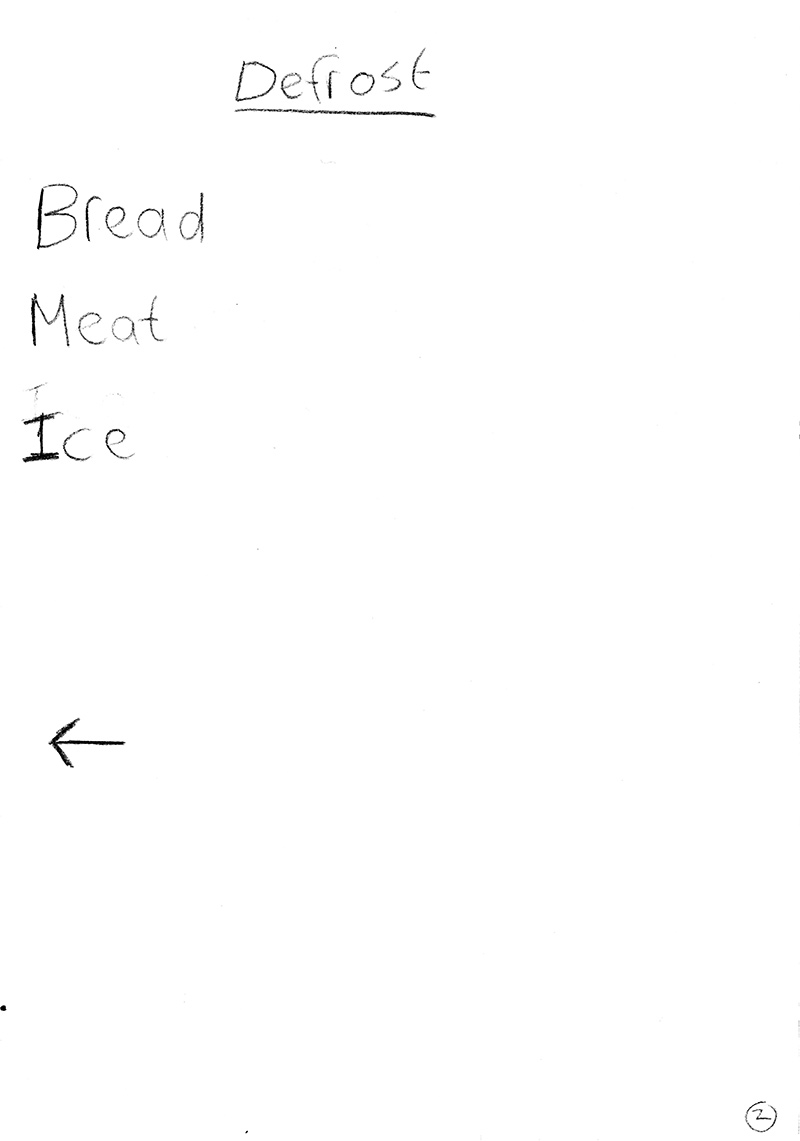 Defrost
Bread
Meat
Ice
←
2